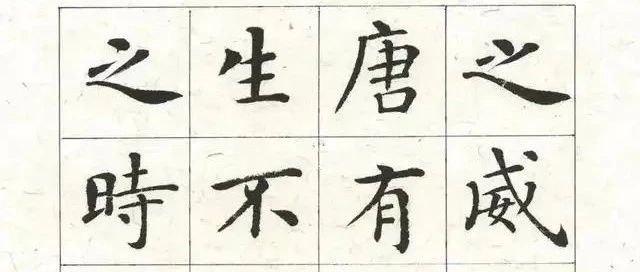 之威
唐有
生不
之時